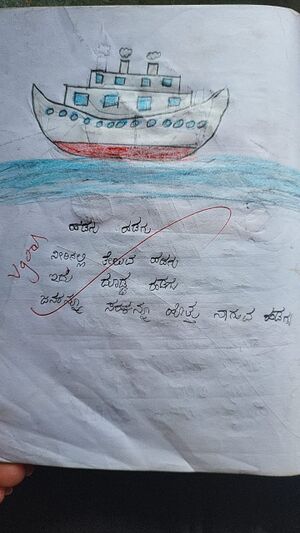 ಹಡಗು ಹಡಗು
V good
ನೀರಿನಲ್ಲಿ ತೇಲುವ ಹಡಗು
ಇದು ದೊಡ್ಡ ಹಡಗು
ಜನರನ್ನೂ ಸರಕನ್ನೂ ಹೊತ್ತು ಸಾಗುವ ಹಡಗು